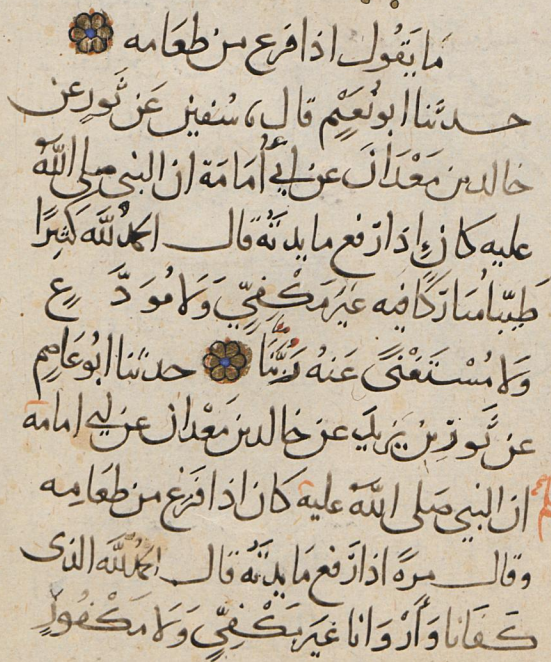 ما يَقُول اذا فرغ من طعَامه
حدثنا ابو نُعَيْم قال نا سُفين عَن ثَورٍ عن
خالد بن مَعْدَانَ عن ابي أُمَامَة ان النبي صلى اللهُ
عليه كان إِذا رَفع مايدتَهُ قال الحمدُ للّه كثِيرًا
طَيّبا مُبَارَكًا فيه غيرَ مَكْفِيٍّ وَلَا مُوَدَّعٍ
وَلَا مُسْتَغْنًى عَنهُ رَبُّنَا حدثنا ابُو عَاصِم
عن ثَورِ بْنِ يَزِيدَ عن خالد بن مَعْدان عن ابي امامة
ان النبي صَلى اللّهُ عليه كان اذا فرَغ من طعَامِه
وقال مرةً اذا رَفع مَايدتَهُ قال الحمدُ للّه الذى
كَفَانا وَأَرْوَانا غيرَ مَكْفِيٍّ وَلَا مَكْفُورٍ